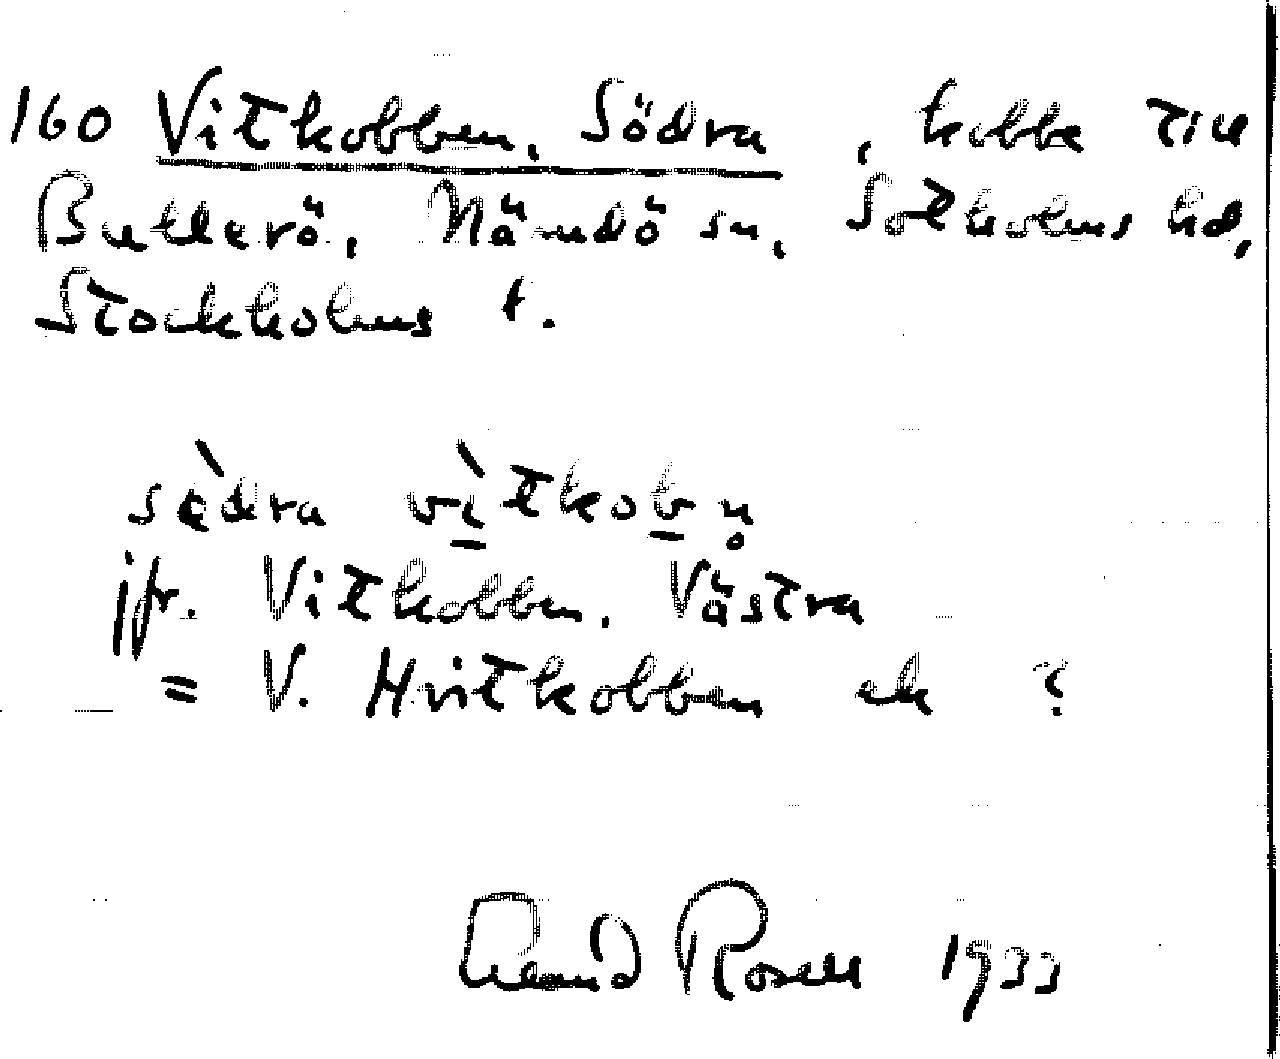 160 Vitkobben, Södra, kobbe till
Bullerö, Nämdö sn, Sotholms hd,
Stockholms l.
sø̀dra vìtkobn̥
jfr. Vitkobben, Västra
= V. Hvitkobben ek ?
Rosell 1933